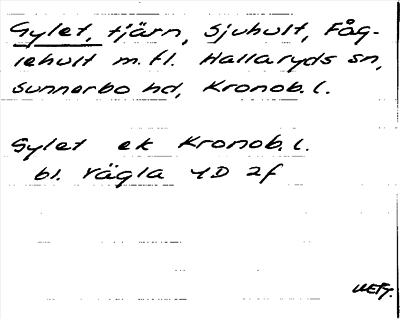 Gylet, tjärn, Sjuhult, Fåg-
lehult m.fl. Hallaryds sn,
Sunnerbo hd, Kronob. l.
Gylet ek Kronob. l.
bl. Vägla 4D 2f